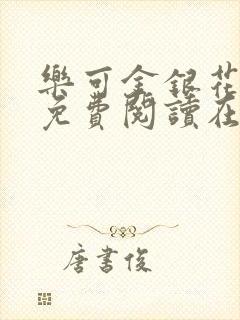 樂可金銀花
免費閱讀在
唐書俊